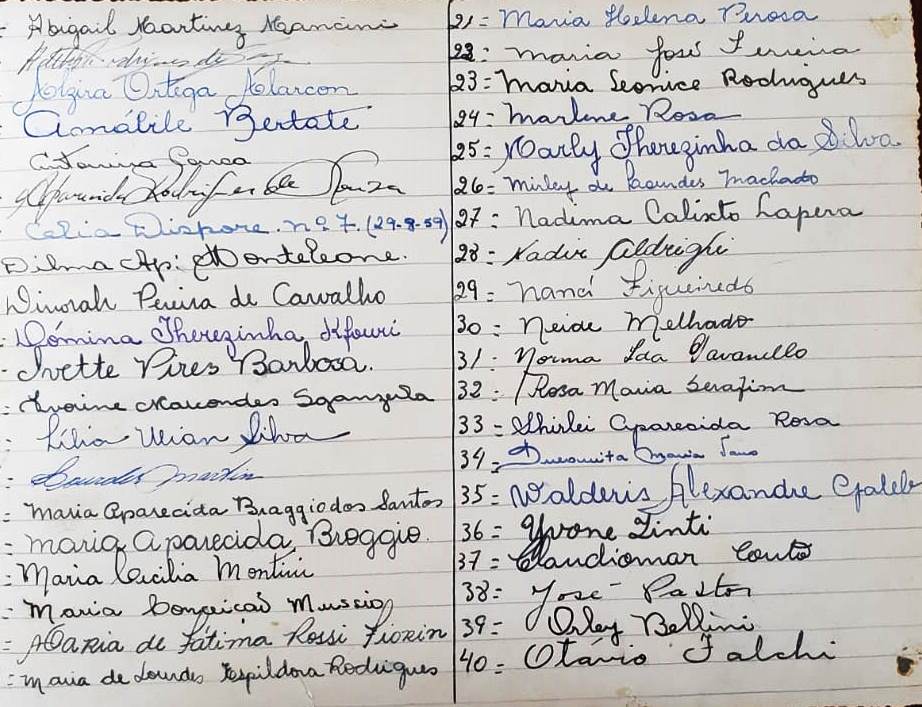 - Abigail Martinez Mancini
Alzira Ortega Alarcon
- Amábile Bertate
Antonina
Aparecida Rodrigues de Souza
- Celia Dispore. nº 7. (29-8-59)
Dilma Ap: Monteleone.
Dinorah Pereira de Carvalho
- Dómina Therezinha Kfouri
- Ivette Pires Barbosa.
- Ivorine Marcondes Sganzerla
: Lília Silva
: Lourdes Martin
= Maria Aparecida Braggio dos Santos
= Maria Aparecida Broggio.
= Maria Cecilia Montini
= Maria Conceição Mussio
= Maria de Fátima Rossi Fiorin
= Maria de Lourdes Espildora Rodrigues
21= Maria Helena Perosa
22= Maria José Ferreira
23= Maria Leonice Rodrigues
24= Marlene Rosa
25= Marly Therezinha da Silva
26= Mirley de Machado
27= Nadima Calixto Lapera
28= Nadir Aldrighi
29= Nanci Figueiredo
30= Neide Melhado
31= Norma Ida Pavanello
32= Rosa Maria Serafim
33= Shirlei Aparecida Rosa
34= Maria
35= Walderis Alexandre Galeb
36= Yvone Zinti
37= Claudiomar Couto
38= José Pastor
39= Orley Bellini
40= Otávio Falchi